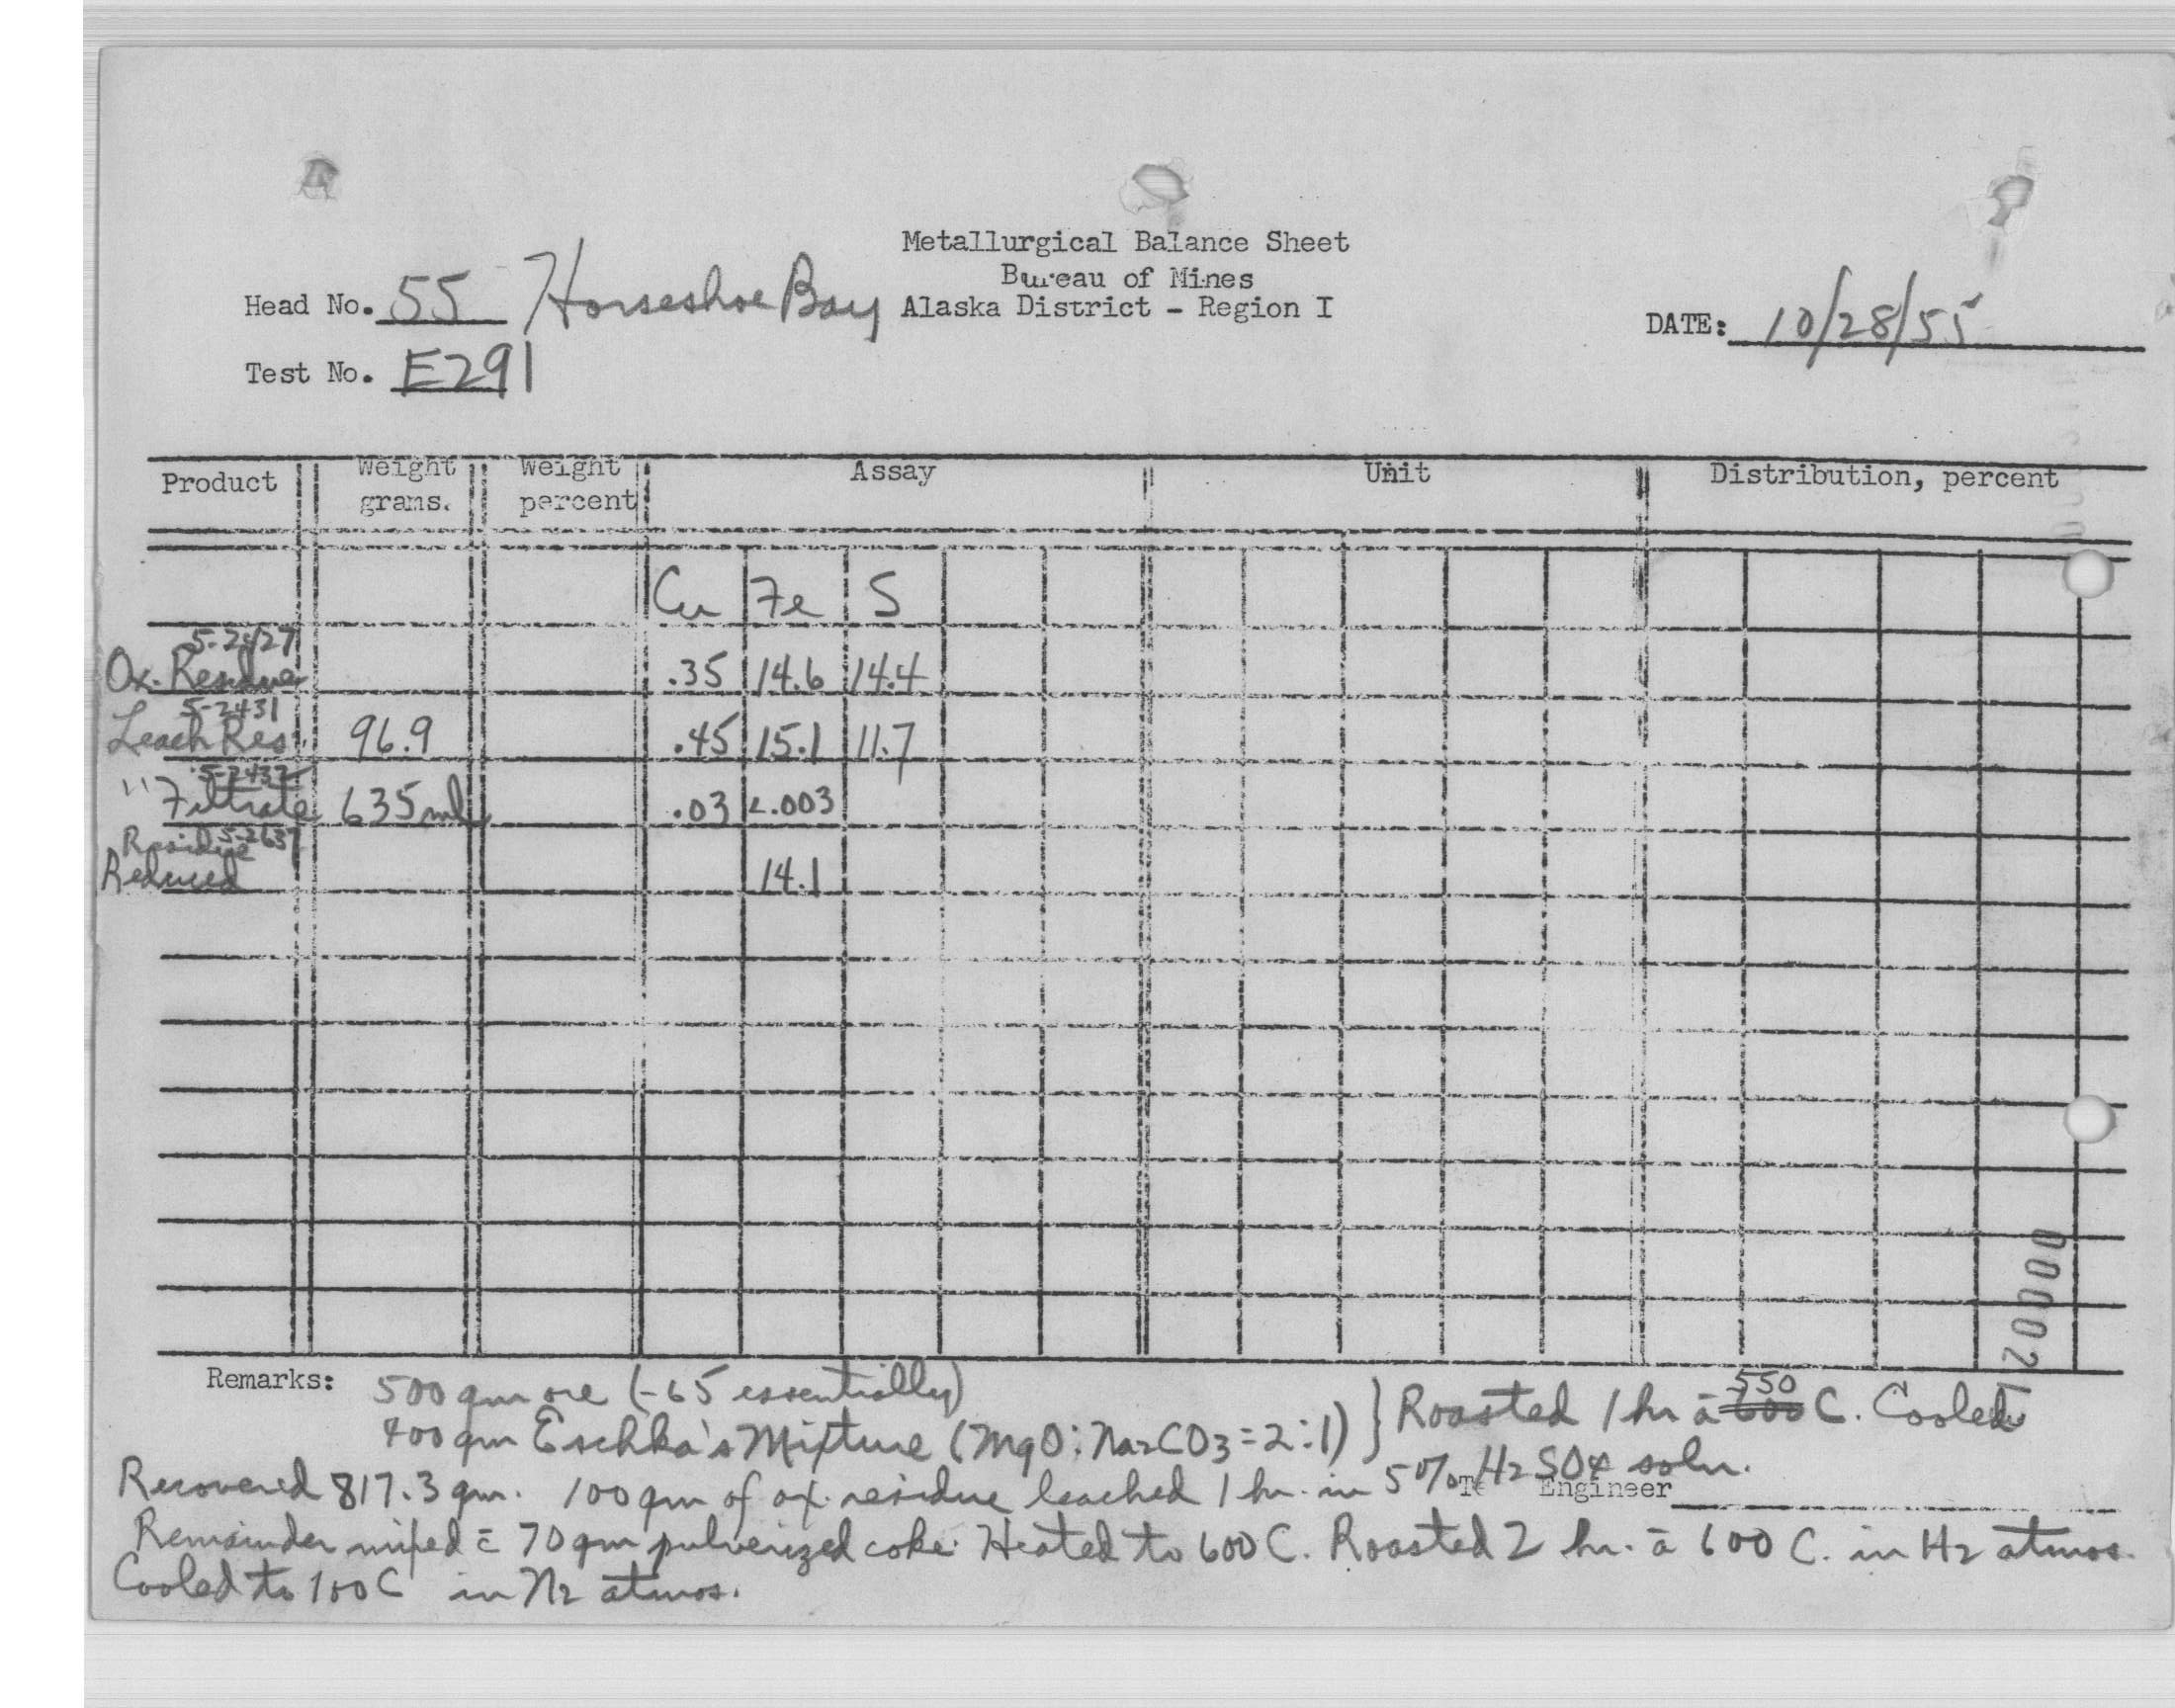 Metallurgical Balance Sheet
Bureau of Mines
Alaska District - Region I
Head No. 55 Horseshoe Bay
DATE: 10/28/55
Test No. E291
Product Weight grams. Weight percent Assay Unit Distribution, percent
Cu Fe S
5-2427
Ox. Residue .35 14.6 14.4
5-2431
Leach Res. 96.9 .45 15.1 11.7
5-2432
" Filtrate 635 ml .03 <.003
Residue 5-2637
Reduced 14.1
00002
Remarks: 500 gm ore (-65 essentially)
400 gm Eschka's Mixture (MgO:Na2CO3=2:1) } Roasted 1 hr ā 600 550 C. Cooled
Recovered 817.3 gm. 100 gm of ox. residue leached 1 hr. in 5% H2SO4 soln.
Engineer
Remainder mixed c̄ 70 gm pulverized coke. Heated to 600 C. Roasted 2 hr. ā 600 C. in H2 atmos.
Cooled to 100 C in N2 atmos.